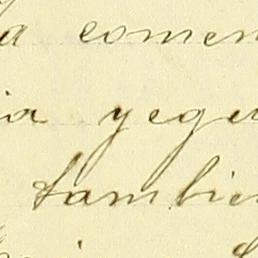 a comen
ia yeger
tambien